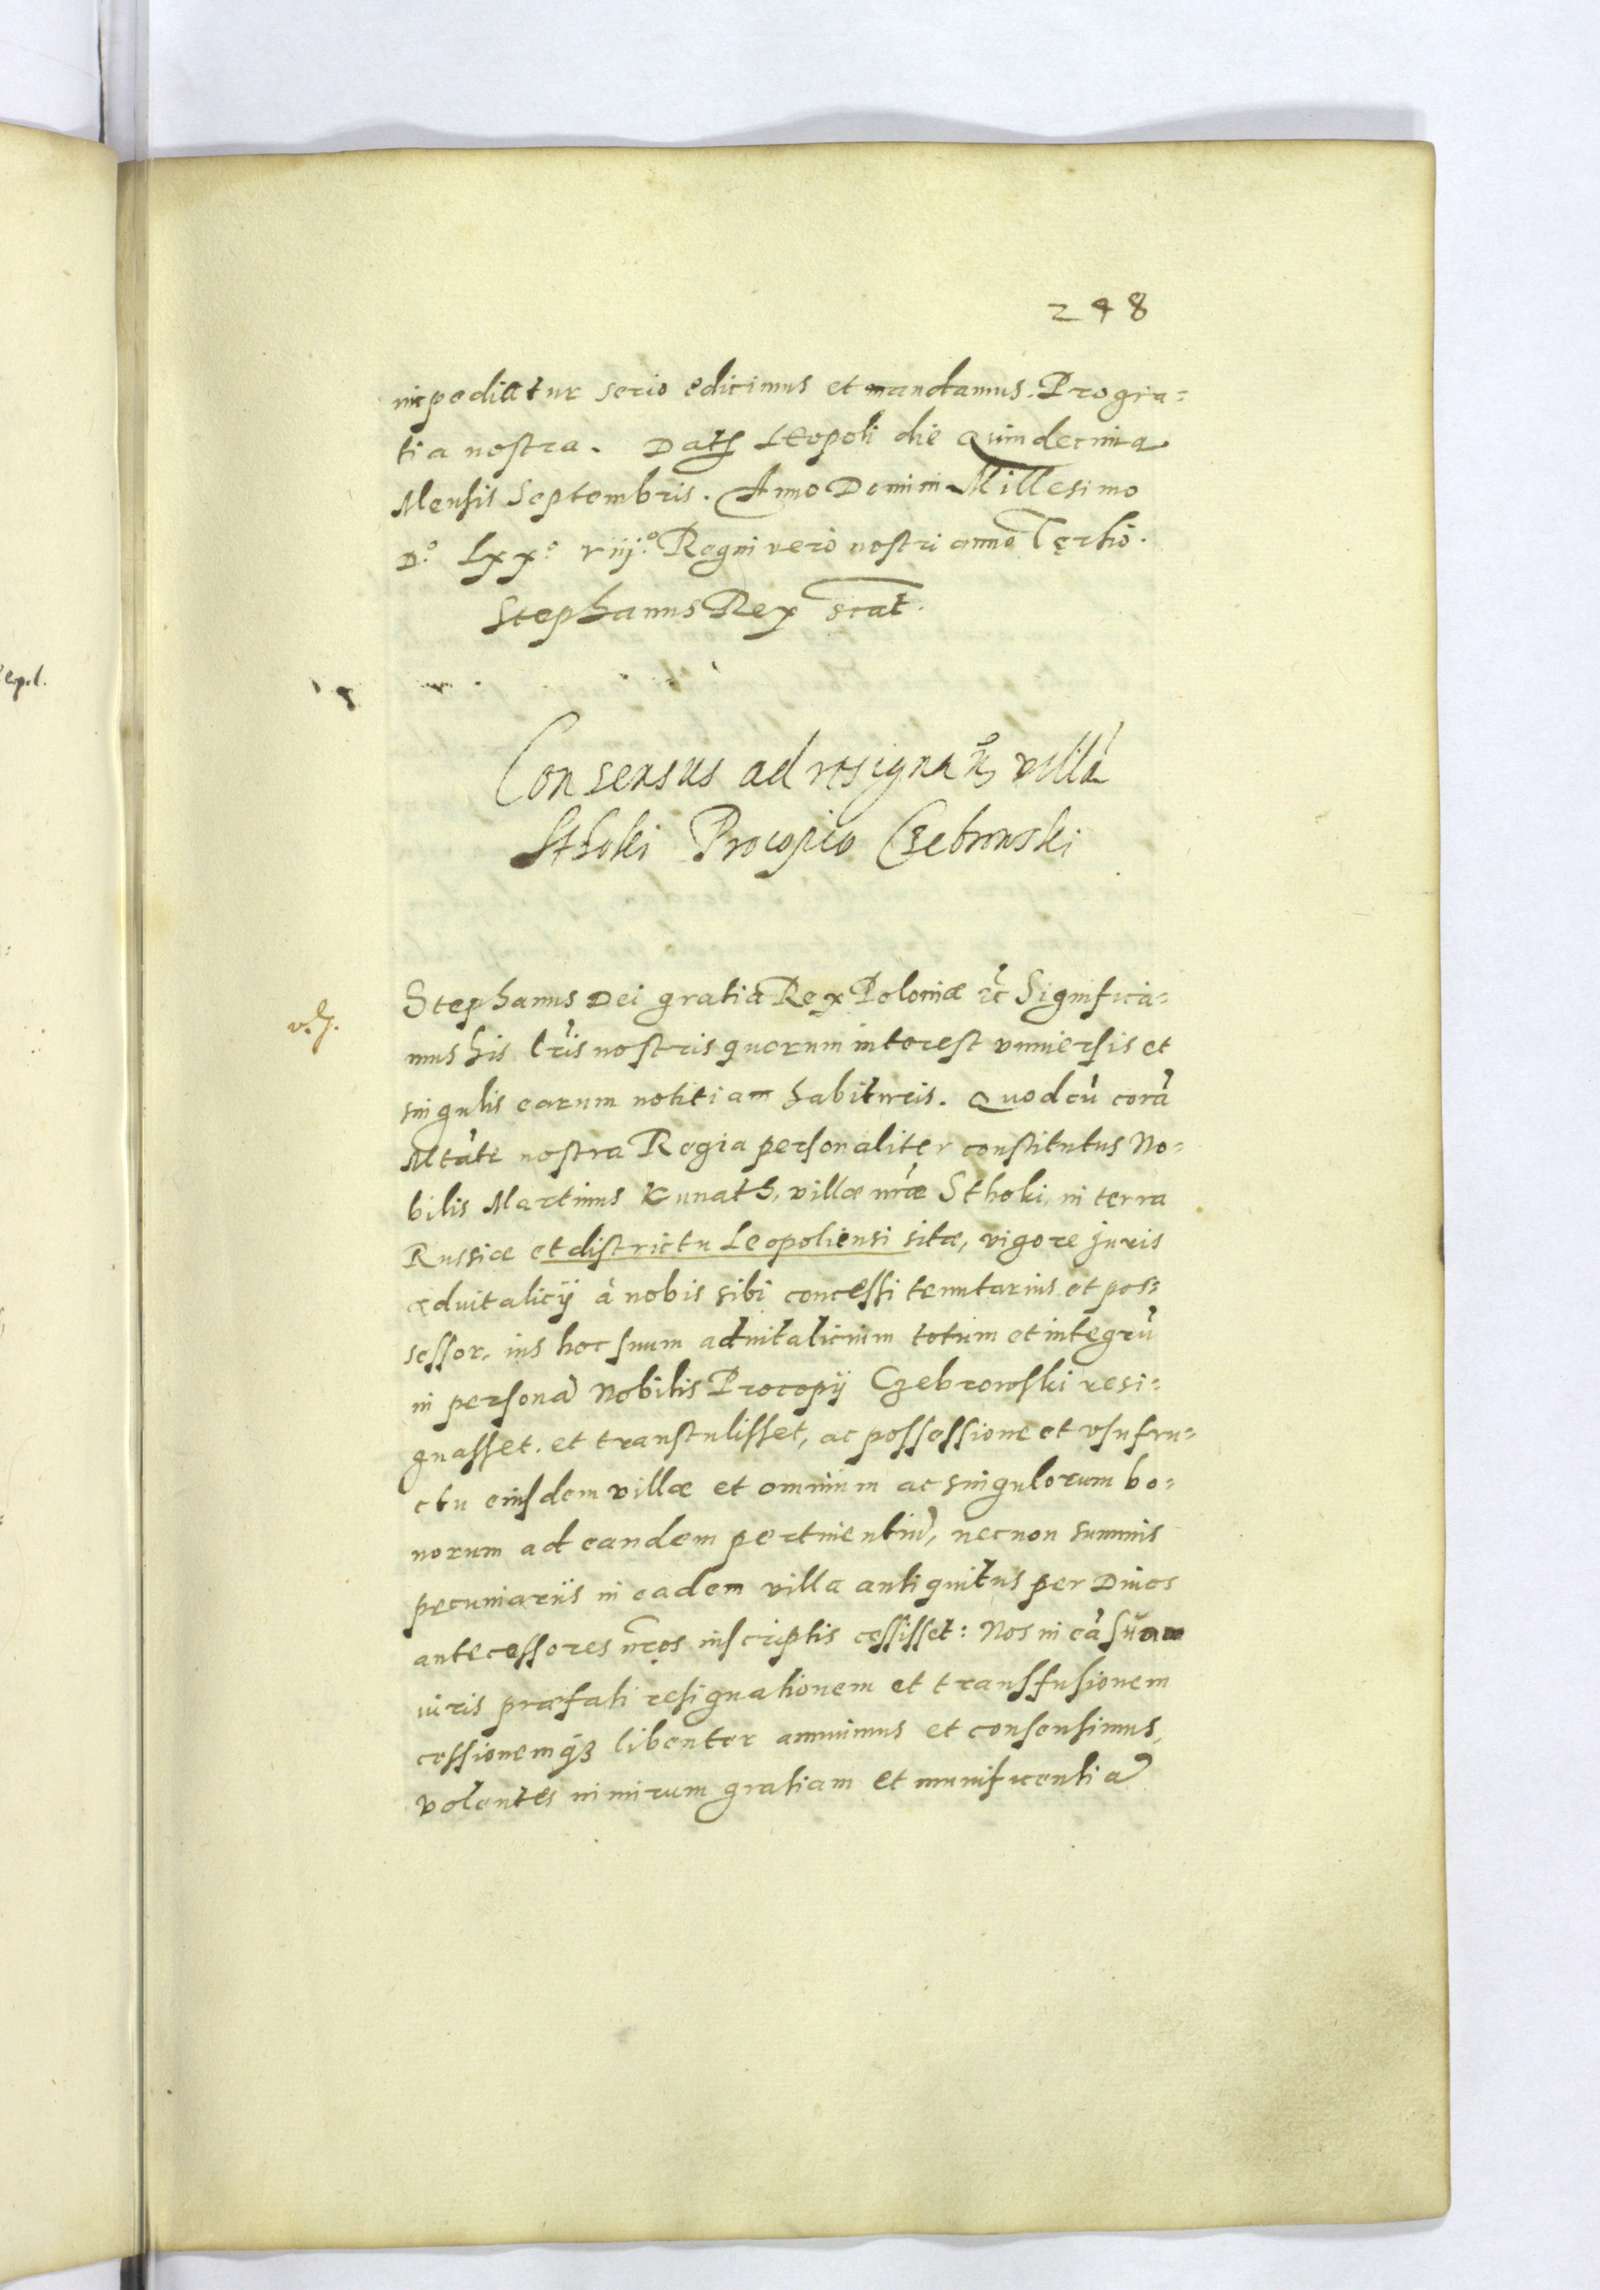 248
impediatur serio edicimus et mandamus. Pro gra=
tia nostra. Dat̃ Leopoli die Quindecima
Mensis Septembris. Anno Domini Millesimo
D.º Lxx.º viij.º Regni vero nostri anno Tertio.
Stephanus Rex scat.
Consensus ad resignan̄ villā
Sthoki Procopio Czebrowski
v. g.
Stephanus Dei gratia Rex Poloniæ ēc Significa=
mus his lr̄is nostris quorum interest vniuersis et
singulis earum notitiam habituris. Quod cū corā
Mtāte nostra Regia personaliter constitutus No=
bilis Martinus Kunath, villæ nr̄æ Sthoki, in terra
Russiæ et districtu Leopoliensi sitæ, vigore juris
aduitalicij à nobis sibi concessi tenutarius et pos=
sessor, ius hoc suum aduitalicium totum et integrū
in personā Nobilis Procopij Czebrowski resi=
gnasset. et transtulisset, ac possessione et vsufru=
ctu eiusdem villæ et omnium ac singulorum bo=
norum ad eandem pertinentiū, necnon summis
pecuniarijs in eadem villa antiquitus per Diuos
antecessores nr̄os inscriptis cessisset: Nos in eā suam
iuris præfati resignationem et transfusionem
cessionemq́ꝫ libenter annuimus et consensimus,
volentes nimirum gratiam et munificentiā
epl.